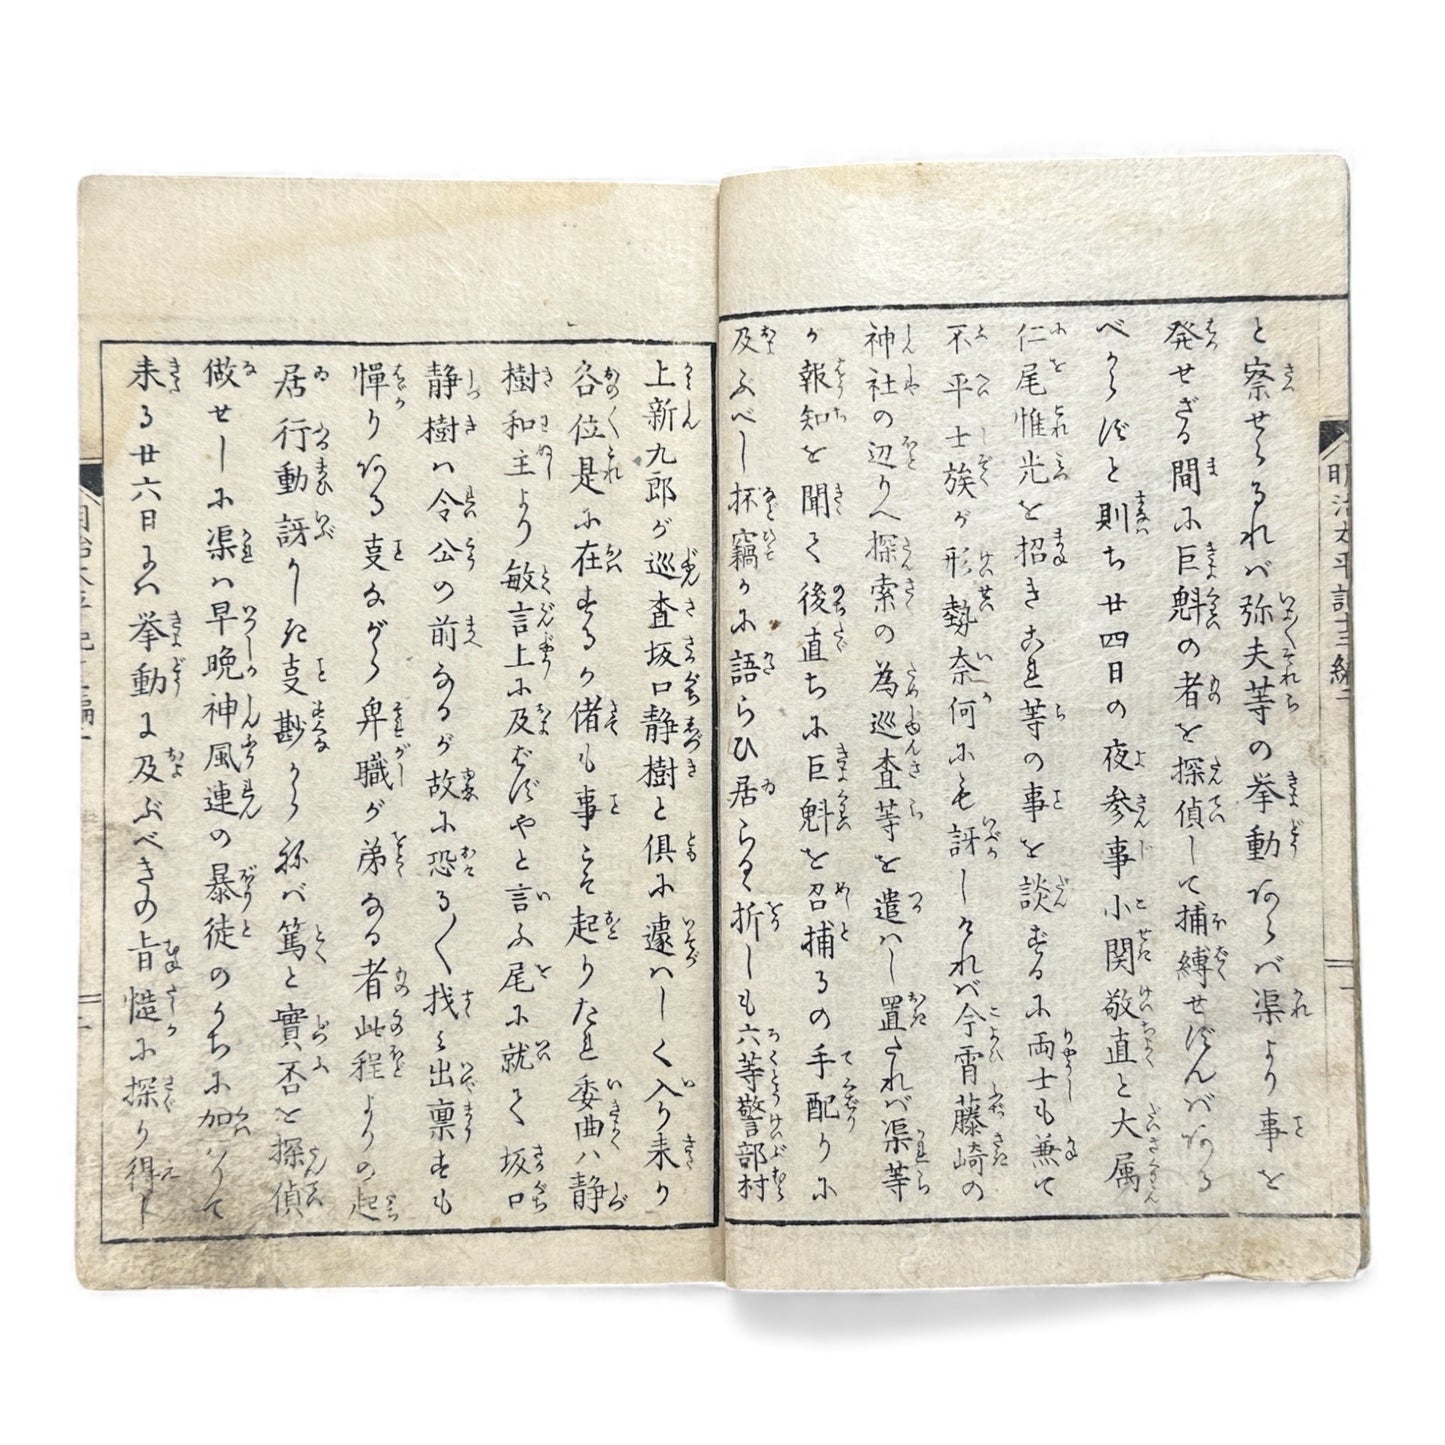 と察せらるれバ弥夫等の挙動あらバ渠より事を
発せざる間に巨魁の者を探偵して捕縛せずんバある
べからずと則ち廿四日の夜参事小関敬直と大属
仁尾惟光を招きこれ等の事を談ずるに両士も兼て
不平士族が形勢奈何にも訝しけれバ今霄藤崎の
神社の辺りへ探索の為巡査等を遣ハし置たれバ渠等
が報知を聞て後直ちに巨魁を召捕るの手配りに
及ぶべし抔竊かに語らひ居らるゝ折しも六等警部村
上新九郎が巡査坂口静樹と倶に遽ハしく入り来り
各位是に在するか偖も事こそ起りたれ委曲ハ静
樹和主より敏言上に及ばずやと言ふ尾に就て坂口
静樹ハ令公の前なるが故に恐る〱找ミ出稟すも
憚りある叓ながら卑職が弟なる者此程よりの起
居行動訝かしき叓尠からねバ篤と實否を探偵
做せしに渠ハ早晩神風連の暴徒のうちに加ハりて
来る廿六日にハ挙動に及ぶべきの旨慥に探り得ト
明治太平記十三編二